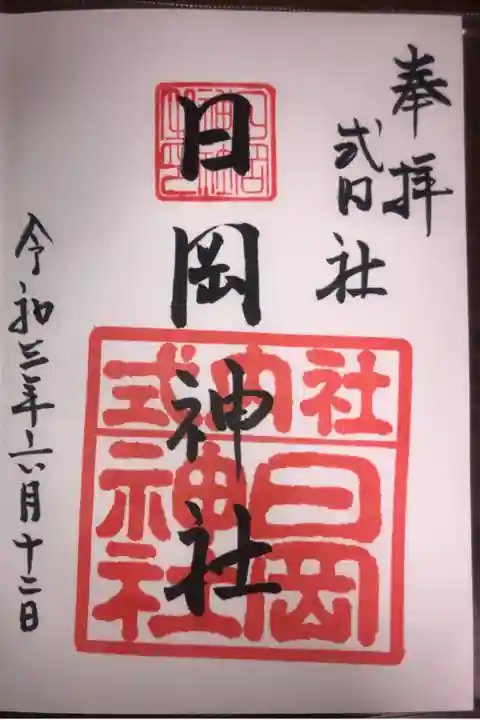 奉拝
式内社
日岡神社
令和三年六月十二日
式内社
日岡
神社